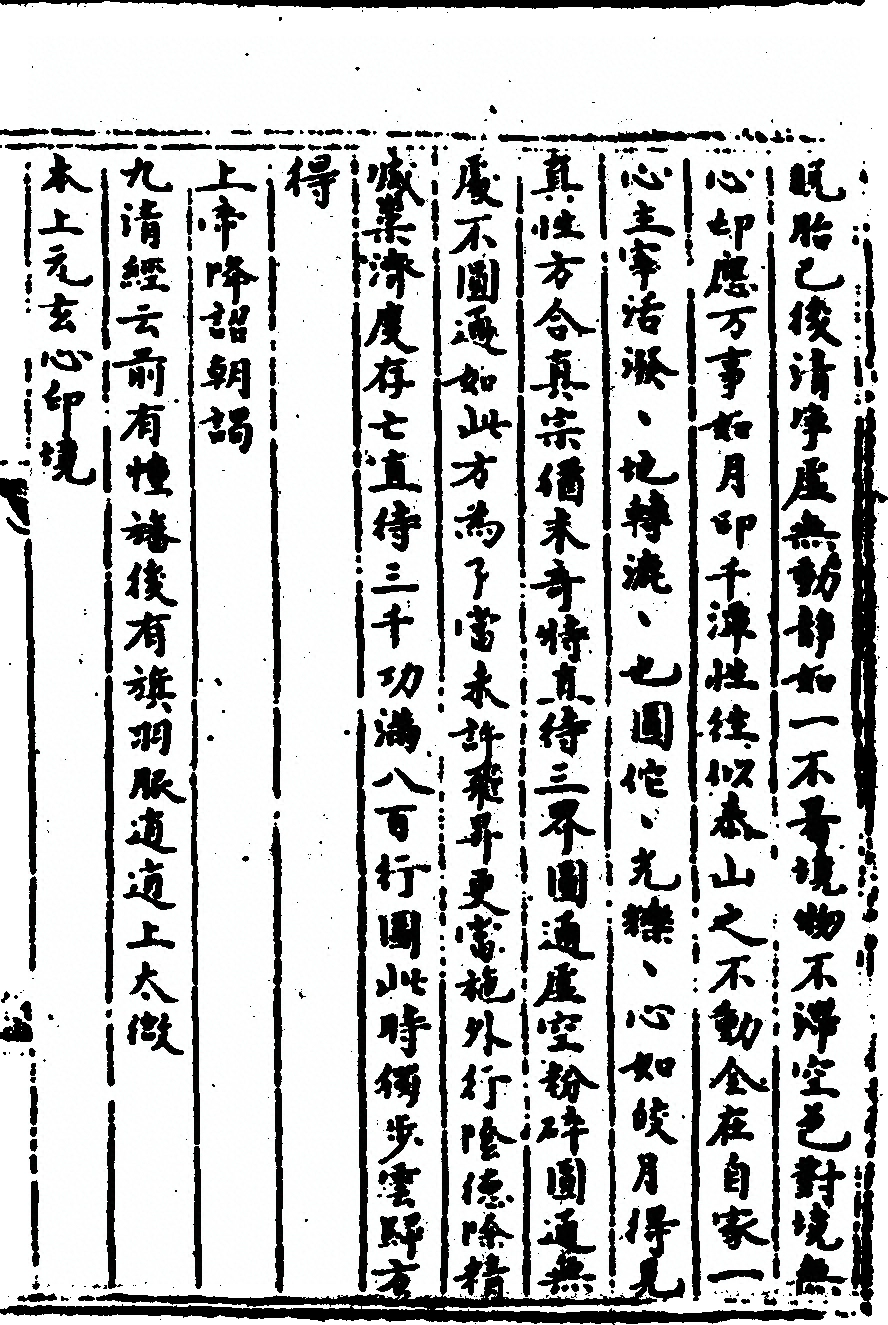 脫胎已後清寧虛無動靜如一不著境物不滯空色對境無
心心印應万事如月印千潭性住似泰山之不動全在自家一
心主宰活潑、地轉漉、也圓佗、光爍、心如皎月得見
真性方合真宗猶未奇特直待三界圓通虛空粉碎圓通無
處不圓通如此方為了當未許飛昇更當施外行陰德除精
滅業濟度存亡直待三千功滿八百行圓此時獨步雲歸方
得
上帝降詔朝謁
九清經云前有憧旛後有旗羽服逍遥上太微
本上元玄心印境